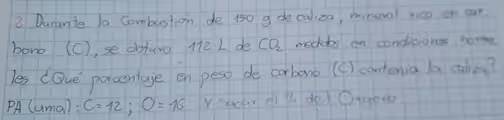 2. Durante la combustion de 150 g de caliza, mineral rico en car
bono (C), se obtuvo 112 L de CO₂ medidos en condiciones norma
les ¿Qué porcentaje en peso de carbono (C) contenía la caliza?
PA (uma): C=12 ; O=16 Y el % del Oxigeno